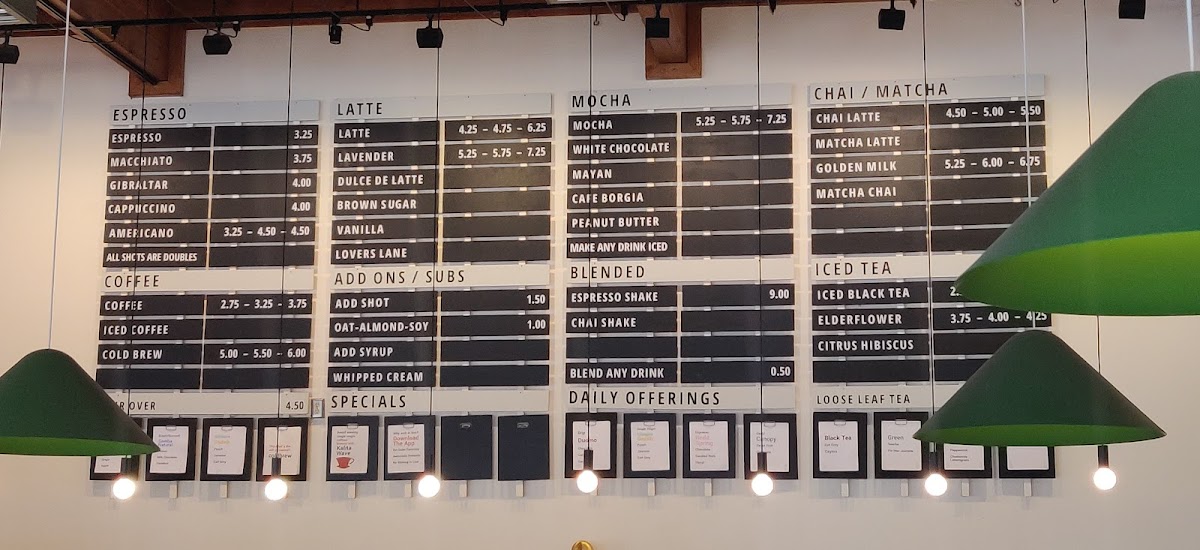 ESPRESSO
ESPRESSO 3.25
MACCHIATO 3.75
GIBRALTAR 4.00
CAPPUCCINO 4.00
AMERICANO 3.25 - 4.50 - 4.50
ALL SHOTS ARE DOUBLES
COFFEE
COFFEE 2.75 - 3.25 - 3.75
ICED COFFEE
COLD BREW 5.00 - 5.50 - 6.00
OVER 4.50
LATTE
LATTE 4.25 - 4.75 - 6.25
LAVENDER 5.25 - 5.75 - 7.25
DULCE DE LATTE
BROWN SUGAR
VANILLA
LOVERS LANE
ADD ONS / SUBS
ADD SHOT 1.50
OAT-ALMOND-SOY 1.00
ADD SYRUP
WHIPPED CREAM
SPECIALS
Kalita
Wave
Download
The App
MOCHA
MOCHA 5.25 - 5.75 - 7.25
WHITE CHOCOLATE
MAYAN
CAFE BORGIA
PEANUT BUTTER
MAKE ANY DRINK ICED
BLENDED
ESPRESSO SHAKE 9.00
CHAI SHAKE
BLEND ANY DRINK 0.50
DAILY OFFERINGS
Canopy
CHAI / MATCHA
CHAI LATTE 4.50 - 5.00 - 5.50
MATCHA LATTE
GOLDEN MILK 5.25 - 6.00 - 6.75
MATCHA CHAI
ICED TEA
ICED BLACK TEA
ELDERFLOWER 3.75 - 4.00 - 4.25
CITRUS HIBISCUS
LOOSE LEAF TEA
Black Tea
Green